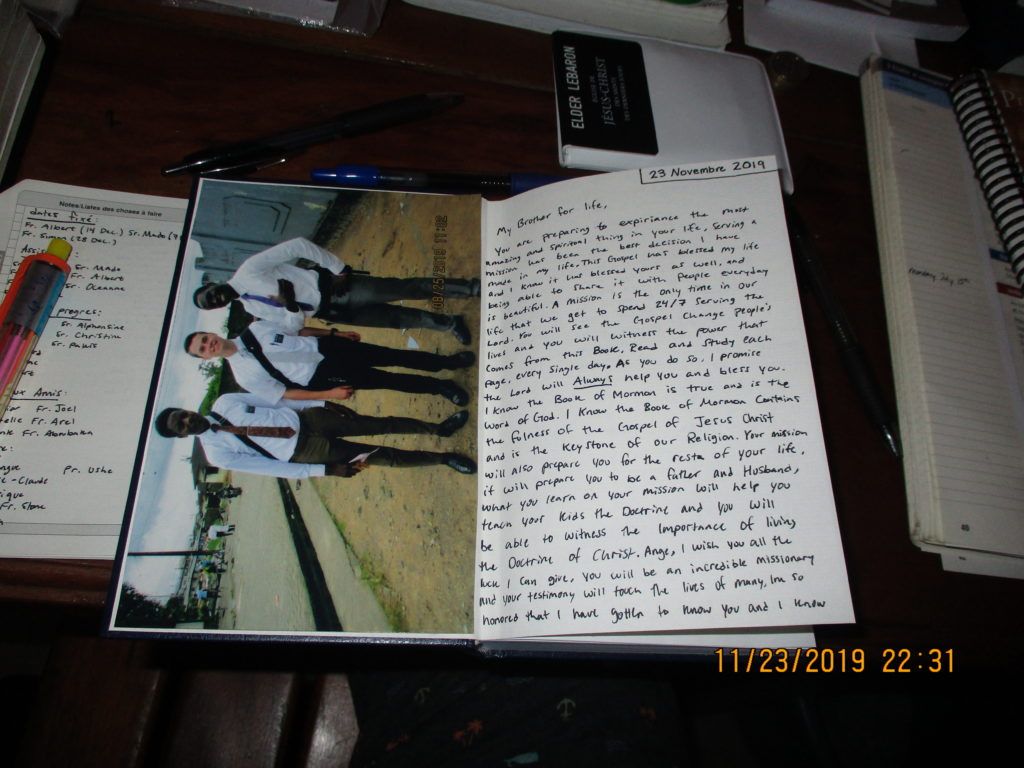 ELDER LEBARON
EGLISE DE
JÉSUS-CHRIST
DES SAINTS
DES DERNIERS JOURS
23 Novembre 2019
My Brother for life,
You are preparing to expiriance the most
amazing and spiritual thing in your life, Serving a
mission has been the best decision I have
made in my life. This Gospel has blessed my life
and I know it has blessed yours as well, and
being able to share it with people everyday
is beautiful. A mission is the only time in our
life that we get to spend 24/7 serving the
Lord. You will see the Gospel Change people's
lives and you will witness the power that
comes from this Book. Read and study each
page, every single day. As you do so, I promise
the Lord will Always help you and bless you.
I know the Book of Mormon is true and is the
word of God. I know the Book of Mormon Contains
the fulness of the Gospel of Jesus Christ
and is the Keystone of our Religion. Your mission
will also prepare you for the resta of your life,
it will prepare you to be a father and Husband,
what you learn on your mission will help you
teach your kids the Doctrine and you will
be able to witness the importance of living
the Doctrine of Christ. Ange, I wish you all the
luck I can give, you will be an incredible missionary
and your testimony will touch the lives of many, Im so
honored that I have gotten to know you and I know
08/25/2019 11:02
Notes/Listes des choses à faire
dates fixé:
Fr. Albert (14 Dec.) Sr. Mado (
Fr. Simon (28 Dec.)
Sr. Mado
Fr. Albert
Sr. Oceanne
progres:
Sr. Alphonsine
Sr. Christine
Amis:
Fr. Joel
Fr. Arel
Fr.
Pr. Ushe
-Claude
Fr. Stone
Monday July 15th
48
11/23/2019 22:31